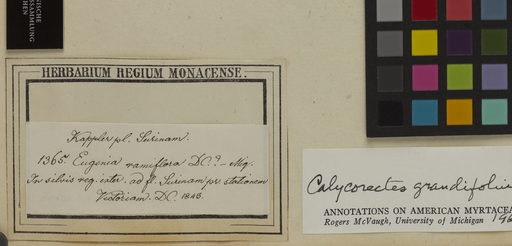 ISCHE
SSAMMLUNG
CHEN
HERBARIUM REGIUM MONACENSE.
Kappler pl. Surinam.
1365. Eugenia ramiflora DC.? – Miq.
In silvis reg. inter. ad fl. Surinam pr. stationem
Victoriam. Dc. 1846.
Calycorectes grandifolius
ANNOTATIONS ON AMERICAN MYRTACEA
Rogers McVaugh, University of Michigan 196